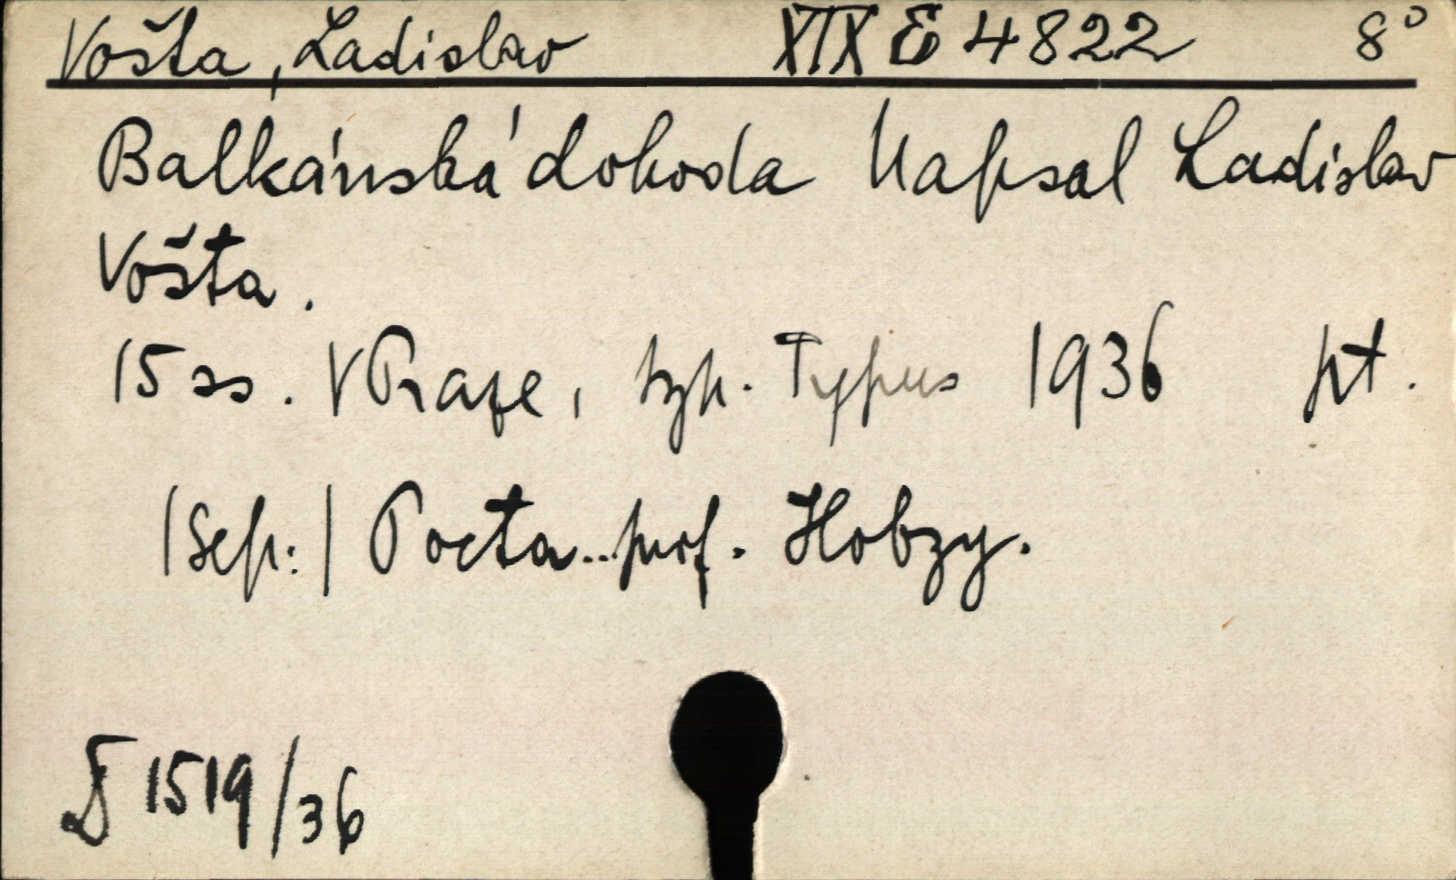 Vošta, Ladislav XIX E 4822 8°
Balkánská dohoda Napsal Ladislav
Vošta.
15 ss. V Praze, typ. Typus 1936 pt.
(Sep:) Pocta.. prof. Hobzy.
1519/36